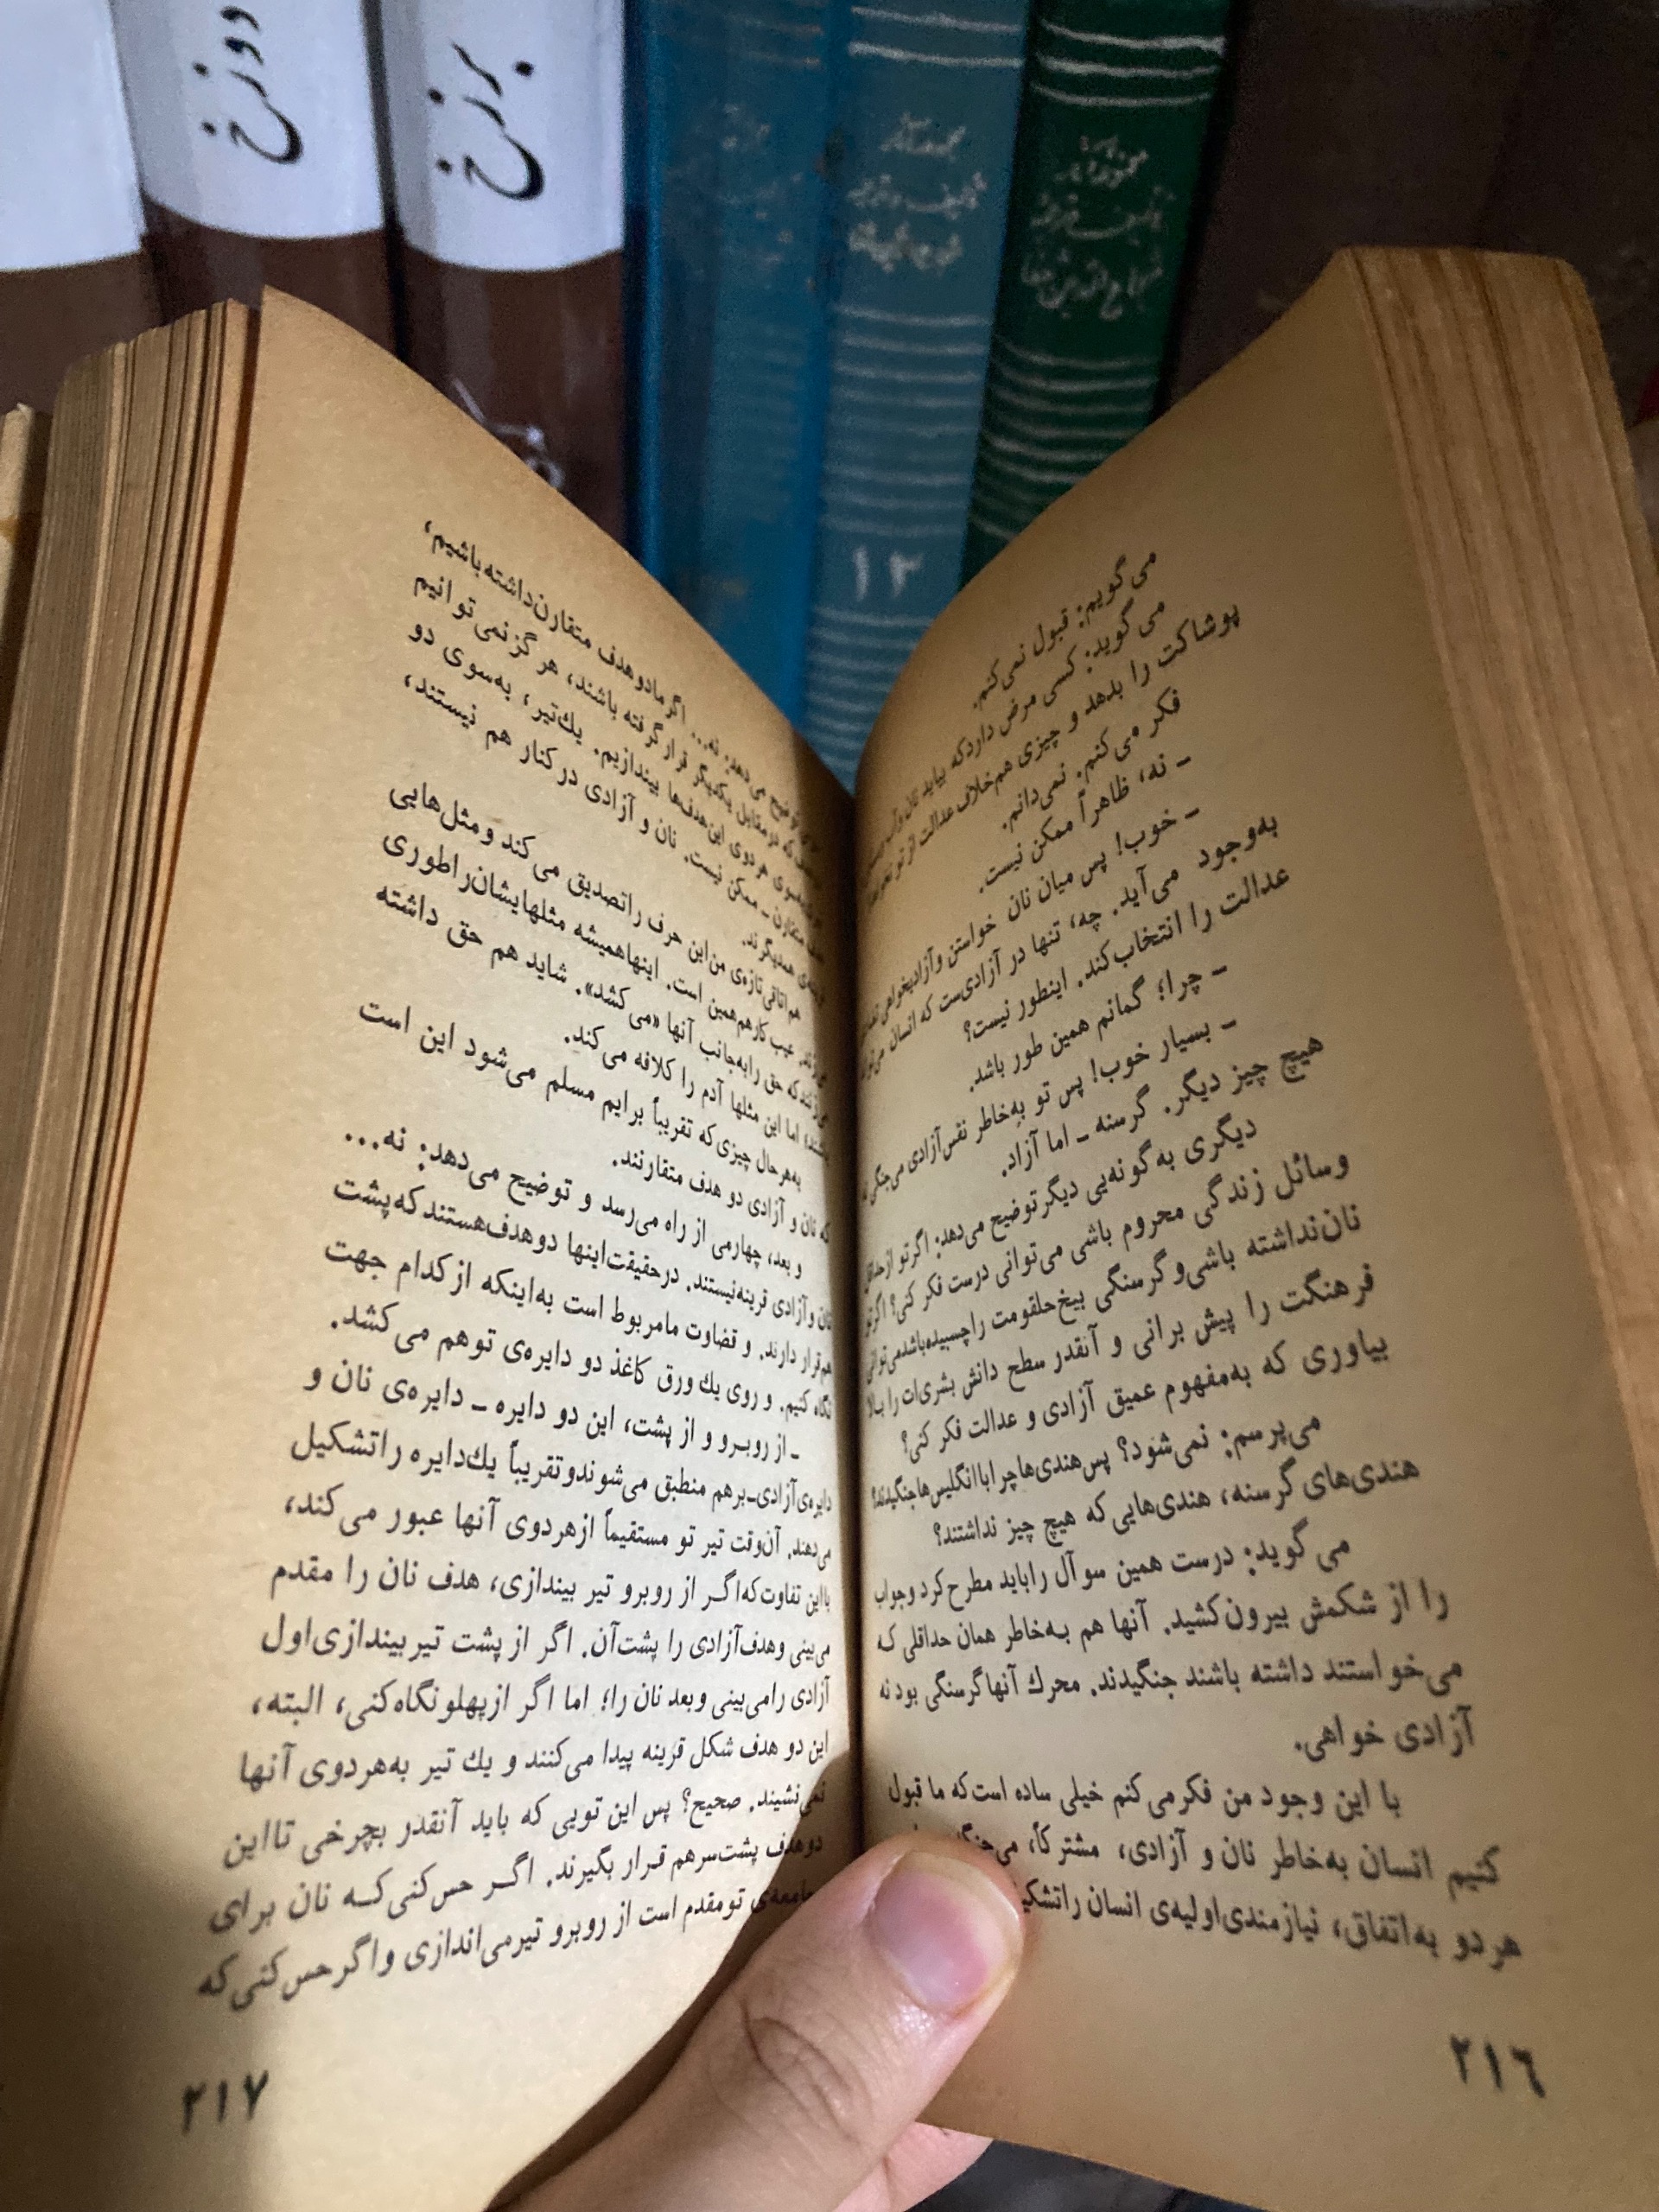 دوزخ
برزخ
۱۳
می‌گویم: قبول نمی‌کنم.
می‌گوید: کسی مرض دارد که بیاید نان و آب و
پوشاکت را بدهد و چیزی هم خلاف عدالت از تو نخواهد
فکر می‌کنم. نمی‌دانم.
ـ نه، ظاهراً ممکن نیست.
ـ خوب! پس میان نان خواستن و آزادیخواهی
به‌وجود می‌آید. چه، تنها در آزادی‌ست که انسان
عدالت را انتخاب کند. اینطور نیست؟
ـ چرا؛ گمانم همین طور باشد.
ـ بسیار خوب! پس تو به‌خاطر نفس آزادی می‌جنگی
هیچ چیز دیگر. گرسنه ـ اما آزاد.
دیگری به گونه‌یی دیگر توضیح می‌دهد: اگر تو از حداقل
وسائل زندگی محروم باشی می‌توانی درست فکر کنی؟ اگر تو
نان نداشته باشی و گرسنگی بیخ حلقومت را چسبیده باشد می‌توانی
فرهنگت را پیش برانی و آنقدر سطح دانش بشری‌ات را بالا
بیاوری که به‌مفهوم عمیق آزادی و عدالت فکر کنی؟
می‌پرسم: نمی‌شود؟ پس هندی‌ها چرا با انگلیس‌ها جنگیدند؟
هندی‌های گرسنه، هندی‌هایی که هیچ چیز نداشتند؟
می‌گوید: درست همین سوآل را باید مطرح کرد و جواب
را از شکمش بیرون کشید. آنها هم به‌خاطر همان حداقلی که
می‌خواستند داشته باشند جنگیدند. محرك آنها گرسنگی بود نه
آزادی خواهی.
با این وجود من فکر می‌کنم خیلی ساده است که ما قبول
کنیم انسان به‌خاطر نان و آزادی، مشترکاً،
هر دو به‌اتفاق، نیازمندی اولیه‌ی انسان را
۲۱٦
توضیح می‌دهد: نه... اگر ما دو هدف متقارن داشته باشیم،
که در مقابل یکدیگر قرار گرفته باشند، هرگز نمی‌توانیم
بسوی هر دوی این هدف‌ها بیندازیم. يك تیر، به‌سوی دو
هدف متقارن ـ ممکن نیست. نان و آزادی در کنار هم نیستند،
همدیگرند.
هم‌اتاقی تازه‌ی من این حرف را تصدیق می‌کند و مثل‌هایی
عیب کار هم همین است. اینها همیشه مثلهایشان را طوری
که حق را به‌جانب آنها «می‌کشد». شاید هم حق داشته
باشند؛ اما این مثلها آدم را کلافه می‌کند.
به‌هر حال چیزی که تقریباً برایم مسلم می‌شود این است
که نان و آزادی دو هدف متقارنند.
و بعد، چهارمی از راه می‌رسد و توضیح می‌دهد: نه...
نان و آزادی قرینه نیستند. در حقیقت اینها دو هدف هستند که پشت
هم قرار دارند. و قضاوت ما مربوط است به اینکه از کدام جهت
نگاه کنیم. و روی يك ورق کاغذ دو دایره‌ی توهم می‌کشد.
ـ از روبرو و از پشت، این دو دایره ـ دایره‌ی نان و
دایره‌ی آزادی ـ برهم منطبق می‌شوند و تقریباً يك دایره را تشکیل
می‌دهند. آن‌وقت تیر تو مستقیماً از هر دوی آنها عبور می‌کند،
با این تفاوت که اگر از روبرو تیر بیندازی، هدف نان را مقدم
می‌بینی و هدف آزادی را پشت آن. اگر از پشت تیر بیندازی اول
آزادی را می‌بینی و بعد نان را؛ اما اگر از پهلو نگاه کنی، البته،
این دو هدف شکل قرینه پیدا می‌کنند و يك تیر به‌هر دوی آنها
نمی‌نشیند. صحیح؟ پس این تویی که باید آنقدر بچرخی تا این
دو هدف پشت‌سر هم قرار بگیرند. اگر حس کنی که نان برای
جامعه‌ی تو مقدم است از روبرو تیر می‌اندازی و اگر حس کنی که
۲۱۷